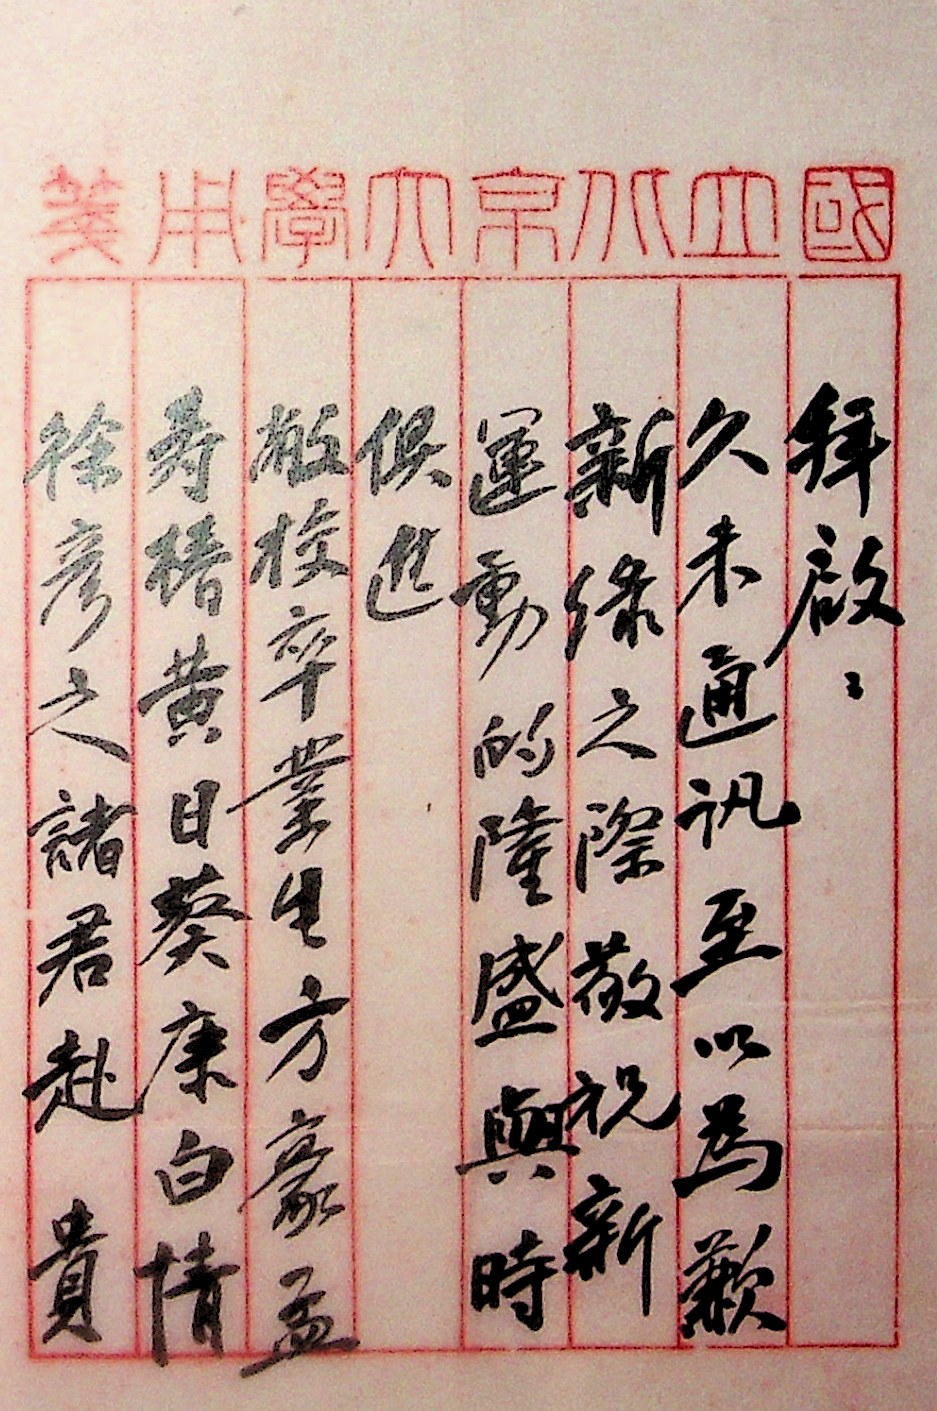 國立北京大學用箋
拜啟：
久未通訊至以為歉
新綠之際敬祝新
運動的隆盛與時
俱進
敝校卒業生方豪孟
壽椿黃日葵康白情
徐彥之諸君赴　貴